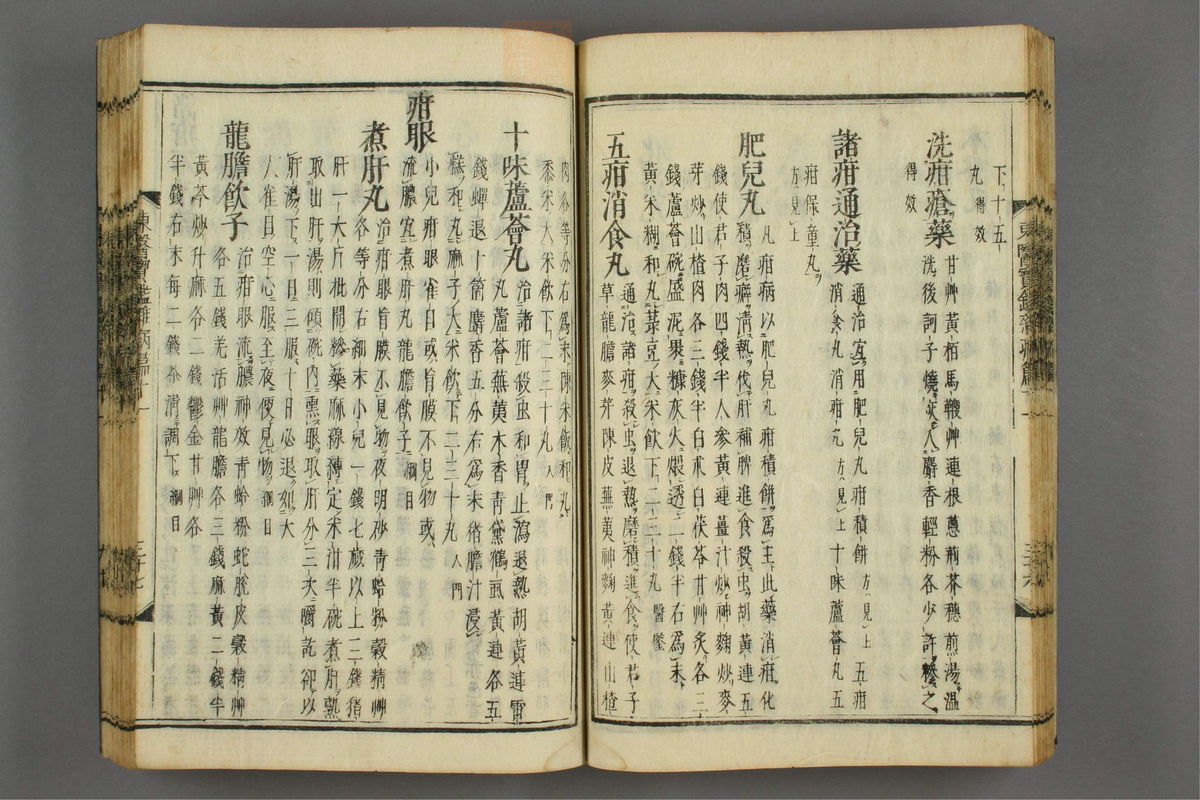 下十五
丸得效
洗疳瘡藥
甘艸黃栢馬鞭艸連根葱荊芥穗煎湯溫
洗後訶子燒灰入麝香輕粉各少許糝之
得效
諸疳通治藥
通治宜用肥兒丸疳積餠方見上五疳
消食丸消疳元方見上十味蘆薈丸五
疳保童丸
方見上
肥兒丸
凡疳病以肥兒丸疳積餠爲主此藥消疳化
積磨癖淸熱伐肝補脾進食殺虫胡黃連五
錢使君子肉四錢半人參黃連薑汁炒神麴炒麥
芽炒山楂肉各三錢半白朮白茯苓甘艸炙各三
錢蘆薈碗盛泥裹糠灰火煨透二錢半右爲末
黃米糊和丸菉豆大米飮下二三十丸醫鑒
五疳消食丸
通治諸疳殺虫退熱磨積進食使君子
草龍膽麥芽陳皮蕪荑神麴黃連山楂
肉各等分右爲末陳米飯和丸
黍米大米飮下二三十丸入門
十味蘆薈丸
治諸疳殺虫和胃止瀉退熱胡黃連雷
丸蘆薈蕪荑木香靑黛鶴虱黃連各五
錢蟬退十箇麝香五分右爲末猪膽汁浸
糕和丸麻子大米飮下二三十丸入門
疳眼
小兒疳眼雀目或盲膜不見物或
流膿宜煮肝丸龍膽飮子綱目
煮肝丸
治疳眼盲膜不見物夜明砂靑蛤粉穀精艸
各等分右細末小兒一錢七歲以上二錢猪
肝一大斤批開糝藥麻線縳定米泔半碗煮肝熟
取出肝湯則傾碗內熏眼取肝分三次嚼訖却以
肝湯下一日三服十日必退如大
人雀目空心服至夜便見物綱目
龍膽飮子
治疳眼流膿神效靑蛤粉蛇脫皮穀精艸
各五錢羌活艸龍膽各三錢麻黃二錢半
黃芩炒升麻各二錢鬱金甘艸各
半錢右末每二錢茶淸調下綱目